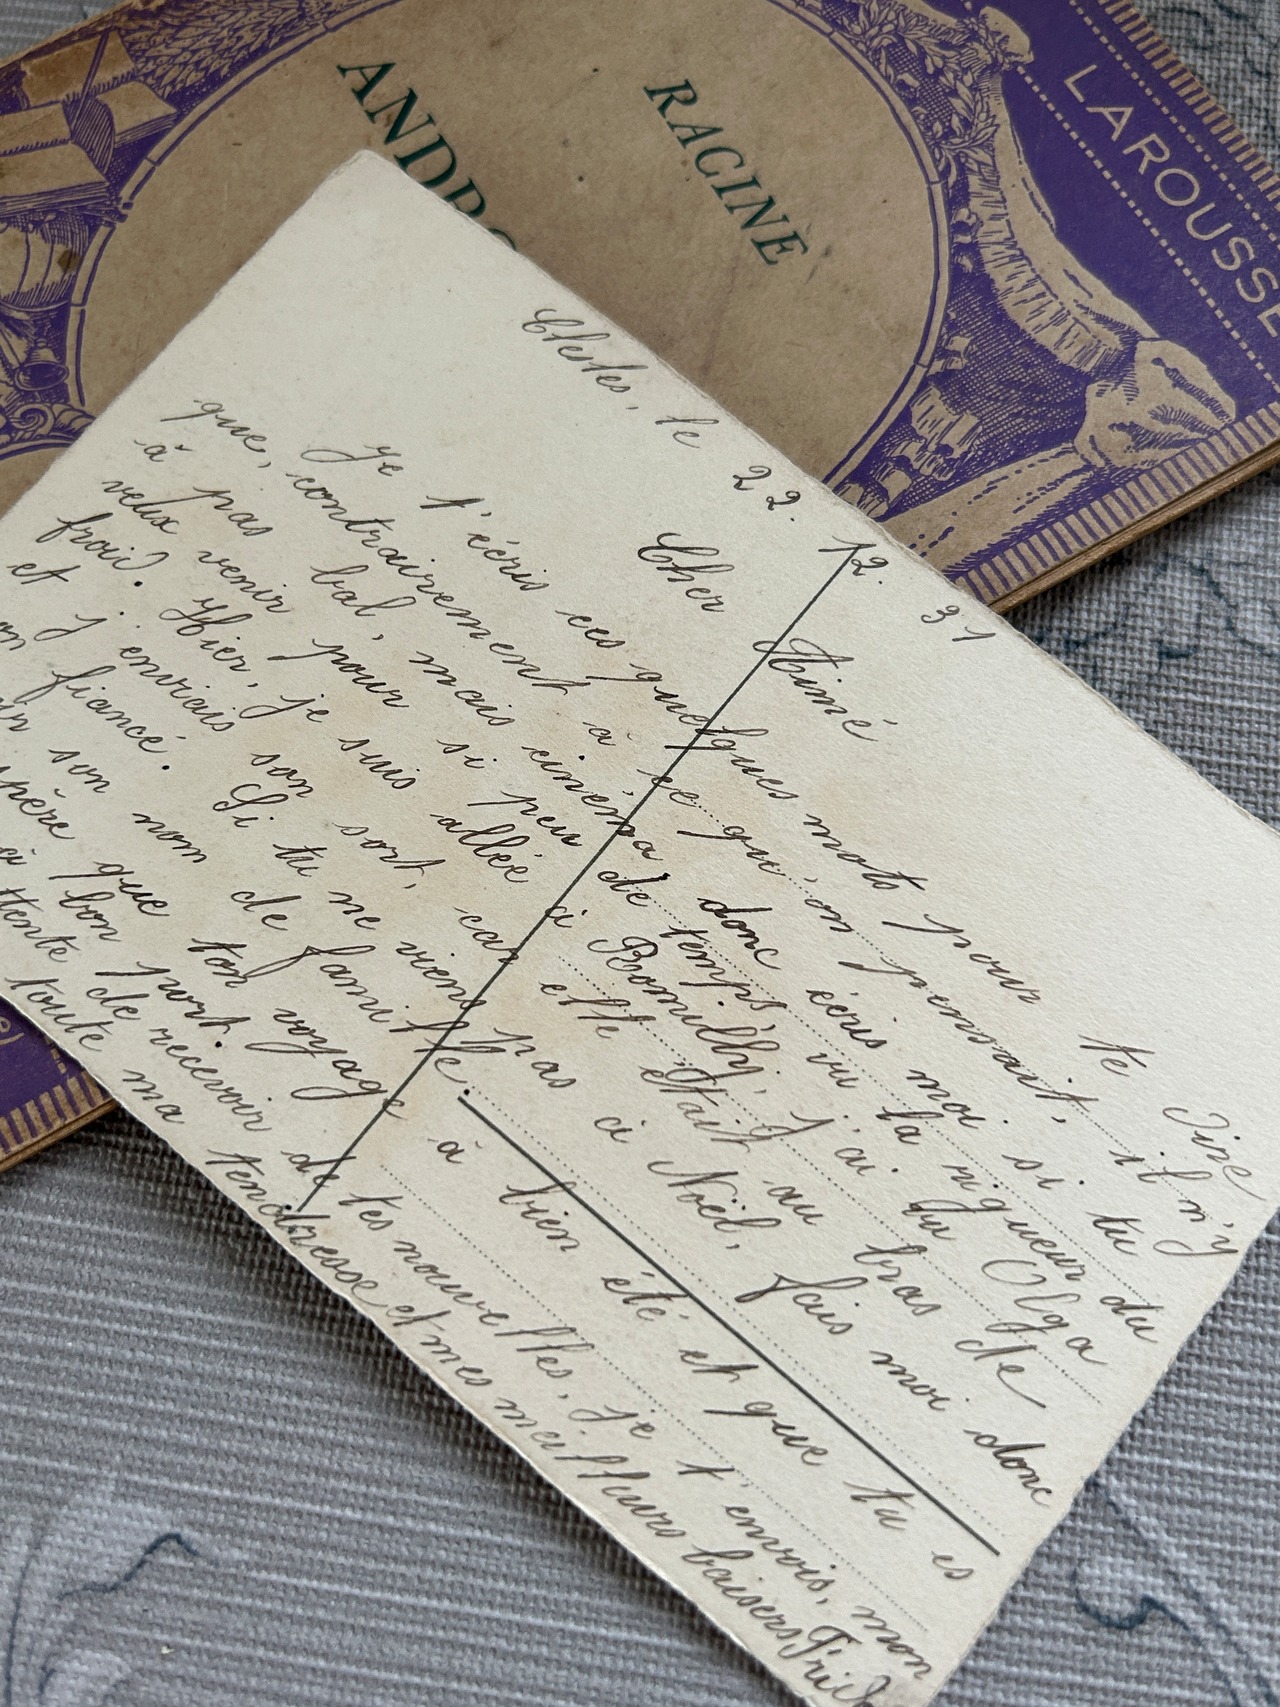 RACINE
ANDRO
LAROUSSE
Clesles, le 22. 12. 31
Cher Aimé
Je t'écris ces quelques mots pour te dire
que, contrairement à ce qu'on pensait, il n'y
à pas bal, mais cinéma donc écris moi si tu
veux venir pour si peu de temps, vu la rigueur du
froid. Hier, je suis allée à Romilly, j'ai vu Olga
et j'enviais son sort, car elle était au bras de
on fiancé. Si tu ne viens pas à Noël, fais moi donc
ir son nom de famille.
père que ton voyage à bien été et que tu es
à bon port.
ttente de recevoir de tes nouvelles, je t'envois, mon
toute ma tendresse et mes meilleurs baisers